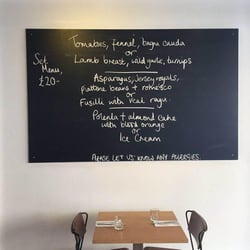 Tomatoes, fennel, bagna cauda
or
Lamb breast, wild garlic, turnips
Set
Menu,
£20-
Asparagus, Jersey royals,
piattone beans + romesco
or
Fusilli with veal ragu
Polenta + almond cake
with blood orange
or
Ice Cream
PLEASE LET US KNOW ANY ALLERGIES.